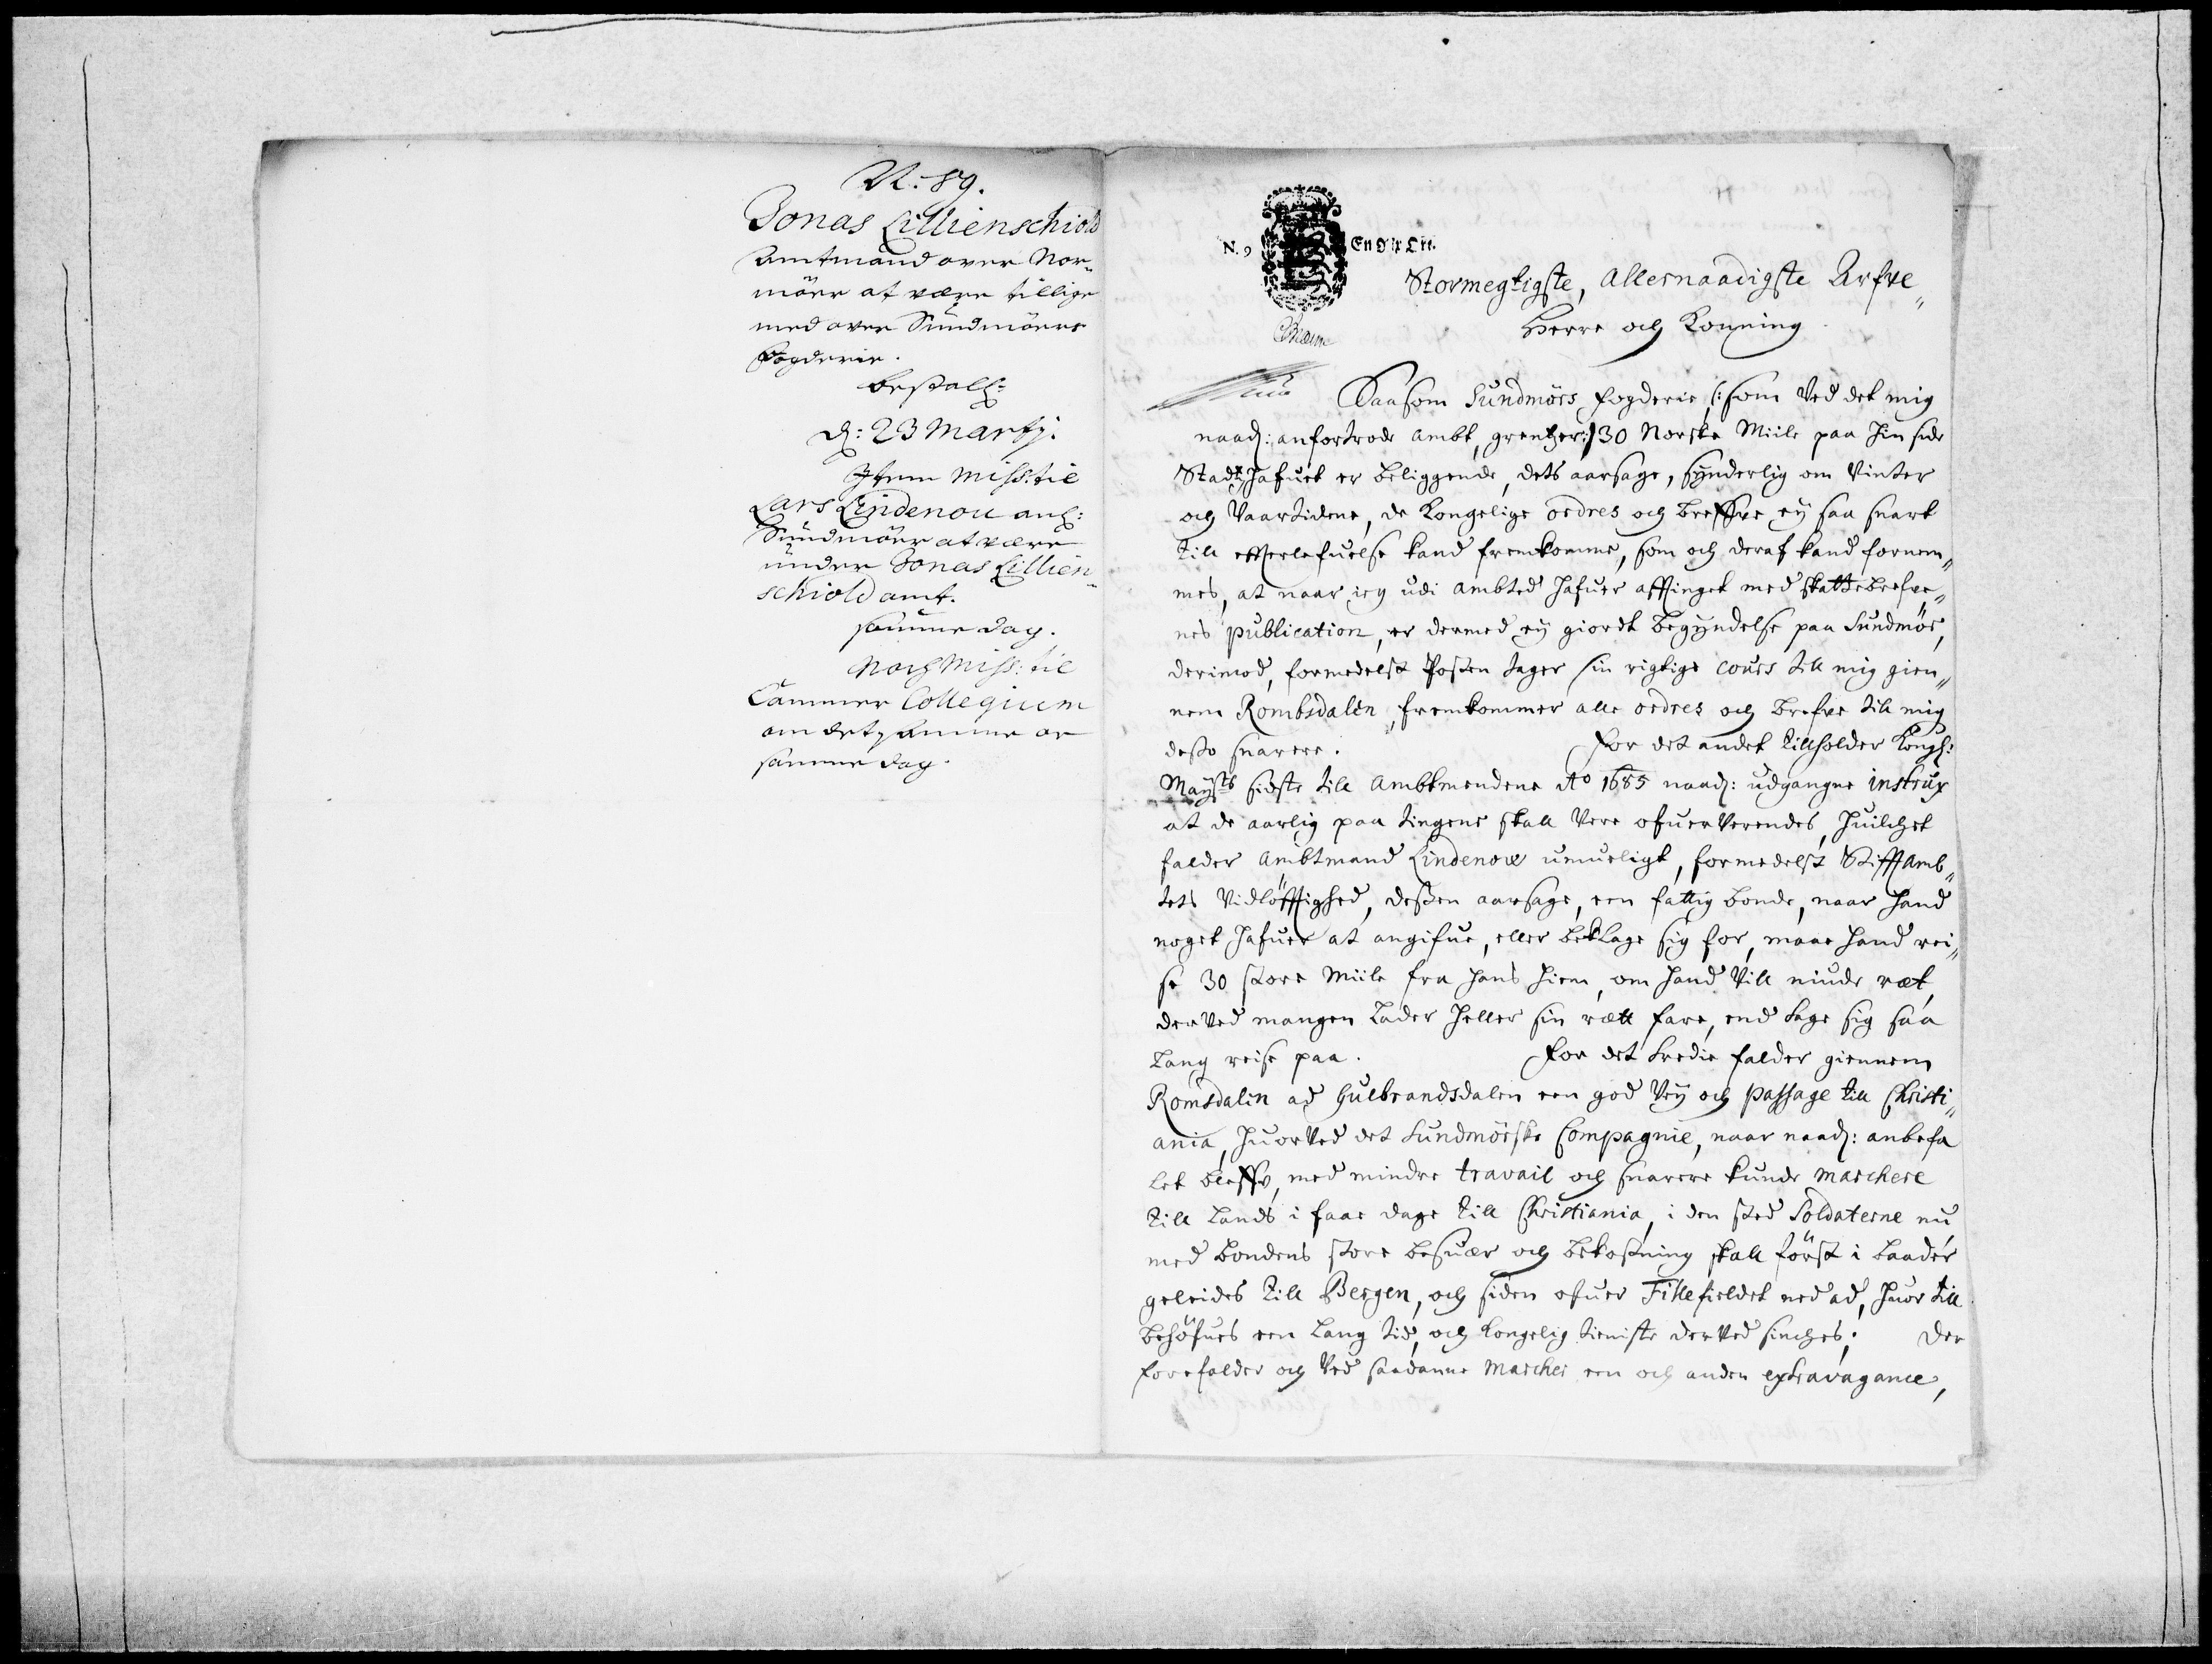 N: 89.
Jonas Lillienschiold
Amtmand over Nor¬
möer at være tillige
med over Sundmöers
Fogderie.
Bestall:
d: 23 Martij.
Item Miss: til
Lars Lindenou anl:
Sundmöer at være
under Jonas Lillien¬
schiold amt.
samme dag.
Noch Miss: til
Cammer Collegium
om det samme af
samme dag.
N. 9
En ort
Stormegtigste, Allernaadigste Arfve¬
Herre och Konning
Saasom Sundmörs fogderie /: som Ved det mig
naad: anfortrode ambt, grentzer :/ 30 Norske Miile paa hin side
Stadt hafuet er beliggende, dets aarsage, synderlig om Vinter
och Vaartidene, de Kongelige ordres och breffve ey saa snart
till effterlefuelse kand fremkomme, som och deraf kand fornem¬
mes, at naar ieg udi ambted hafuer afftinget med skattebrefve¬
nes publication, er dermed ey giordt begyndelse paa Sundmör,
derimod, formedelst Posten tager sin rigtige cours till mig gien¬
nem Rombsdalen, fremkommer alle ordres och brefve till mig
desto snarere. For det andet tillholder Kongl:
Mayts sidste till Ambtmendene Ao 1685 naad: udgangne instrux
at de aarlig paa tingene skall Vere ofuerVerendes, huilchet
falder Ambtmand Lindenow umueligt, formedelst Stifft Amb¬
tets Vidlöfftighed, dessen aarsage, een fattig bonde, naar hand
noget hafuer at angifue, eller beklage sig for, maae hand rei¬
se 30 store Miile fra hans hiem, om hand Vill niude ræt,
derVed mangen Lader heller sin rætt fare, end tage sig saa
Lang reise paa. For det tredie falder giennem
Romsdalen ad Gulbrandsdalen een god Vey och passage till Christi¬
ania, huorVed det Sundmörske Compagnie, naar naad: anbefa
let bleffv, med mindre travail och snarere kunde marchere
till Lands i faae dage till Christiania, i den sted Soldaterne nu
med bondens store besuær och bekostning skall först i baader
geleides till Bergen, och siden ofuer Fillefieldet ned ad, huor till
behöfues een Lang tid, och Kongelig tieniste derVed sinches. Der
forefalder och Ved saadanne Marcher een och anden extravagance,